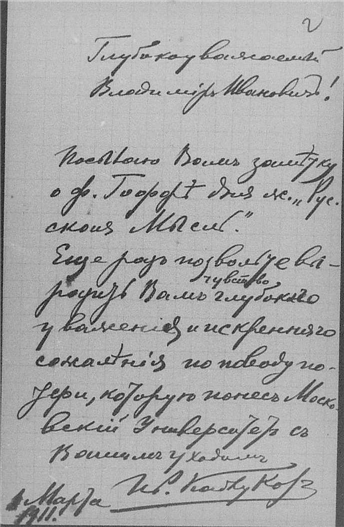 2
Глубокоуважаемый
Владимiръ Ивановичъ!
Посылаю Вамъ замѣтку
о ф. Гоффѣ для ж. „Рус-
ская Мысль".
Еще разъ позвольте вы-
чувство
разить Вамъ глубокаго
уваженія и искренняго
сожалѣнія по поводу по-
тери, которую понесъ Моско-
вскій Университетъ съ
Вашимъ уходомъ
Ив. Каблуковъ
1 Марта
1911.